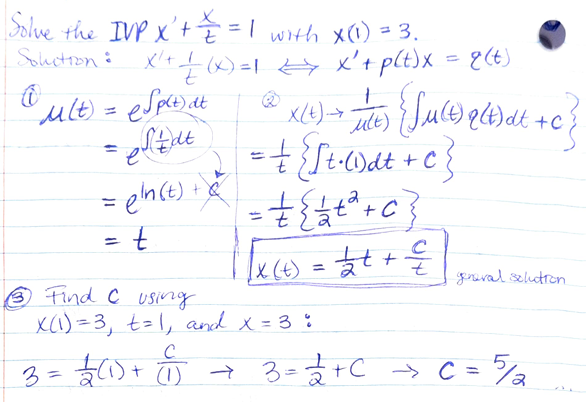 Solve the IVP x' + x/t = 1 with x(1) = 3.
Solution: x' + 1/t (x) = 1 ⟺ x' + p(t)x = q(t)
① μ(t) = e^∫p(t)dt
= e^∫(1/t)dt
= e^ln(t) + C
= t
② x(t) → 1/μ(t) {∫μ(t)q(t)dt + C}
= 1/t {∫t·(1)dt + C}
= 1/t {1/2 t² + C}
x(t) = 1/2 t + C/t general solution
③ Find C using
x(1) = 3, t = 1, and x = 3 :
3 = 1/2 (1) + C/(1) → 3 = 1/2 + C → C = 5/2 ...